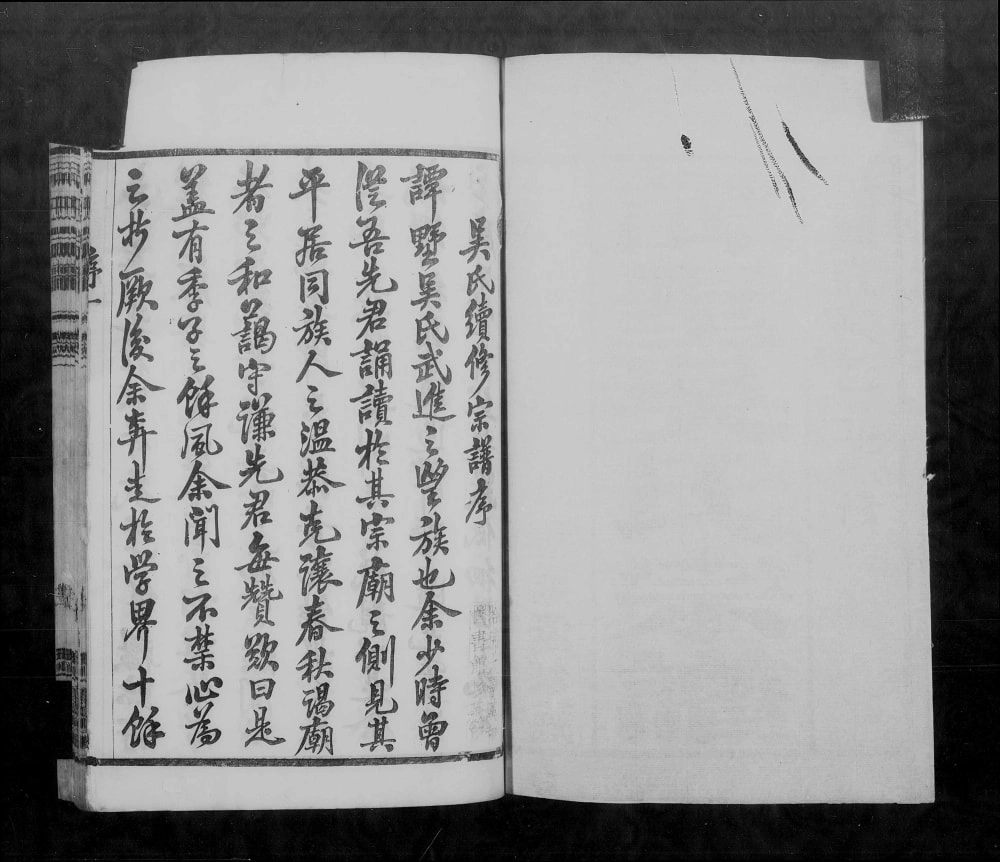 吳氏續修宗譜序
譚墅吳氏武進之望族也余少時曾
從吾先君誦讀於其宗廟之側見其
平居同族人之溫恭克讓春秋謁廟
者之和藹守謙先君每贊歎曰是
蓋有季子之餘風余聞之不禁心為
之折厥後余奔走於学界十餘
序一